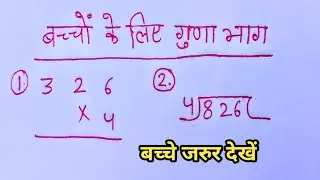 बच्चों के लिए गुणा भाग
① 3 2 6
× 4
2. 4)826(
बच्चे जरुर देखें